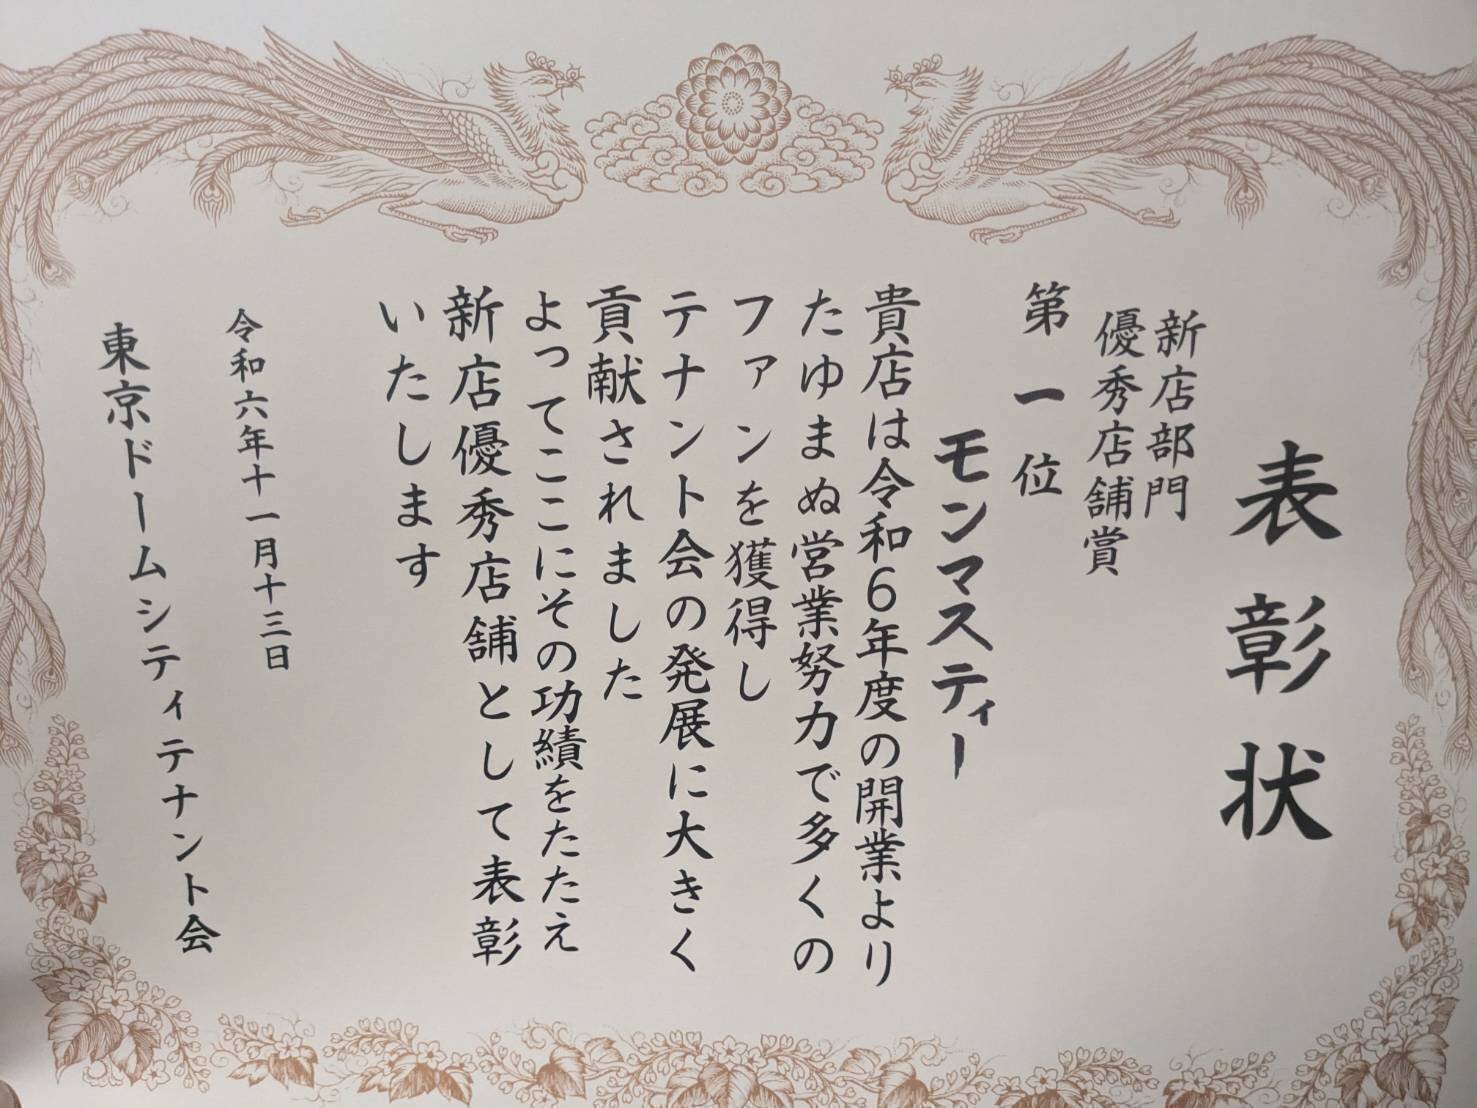 表彰状
新店部門
優秀店舗賞
第一位
モンマスティー
貴店は令和6年度の開業より
たゆまぬ営業努力で多くの
ファンを獲得し
テナント会の発展に大きく
貢献されました
よってここにその功績をたたえ
新店優秀店舗として表彰
いたします
令和六年十一月十三日
東京ドームシティテナント会